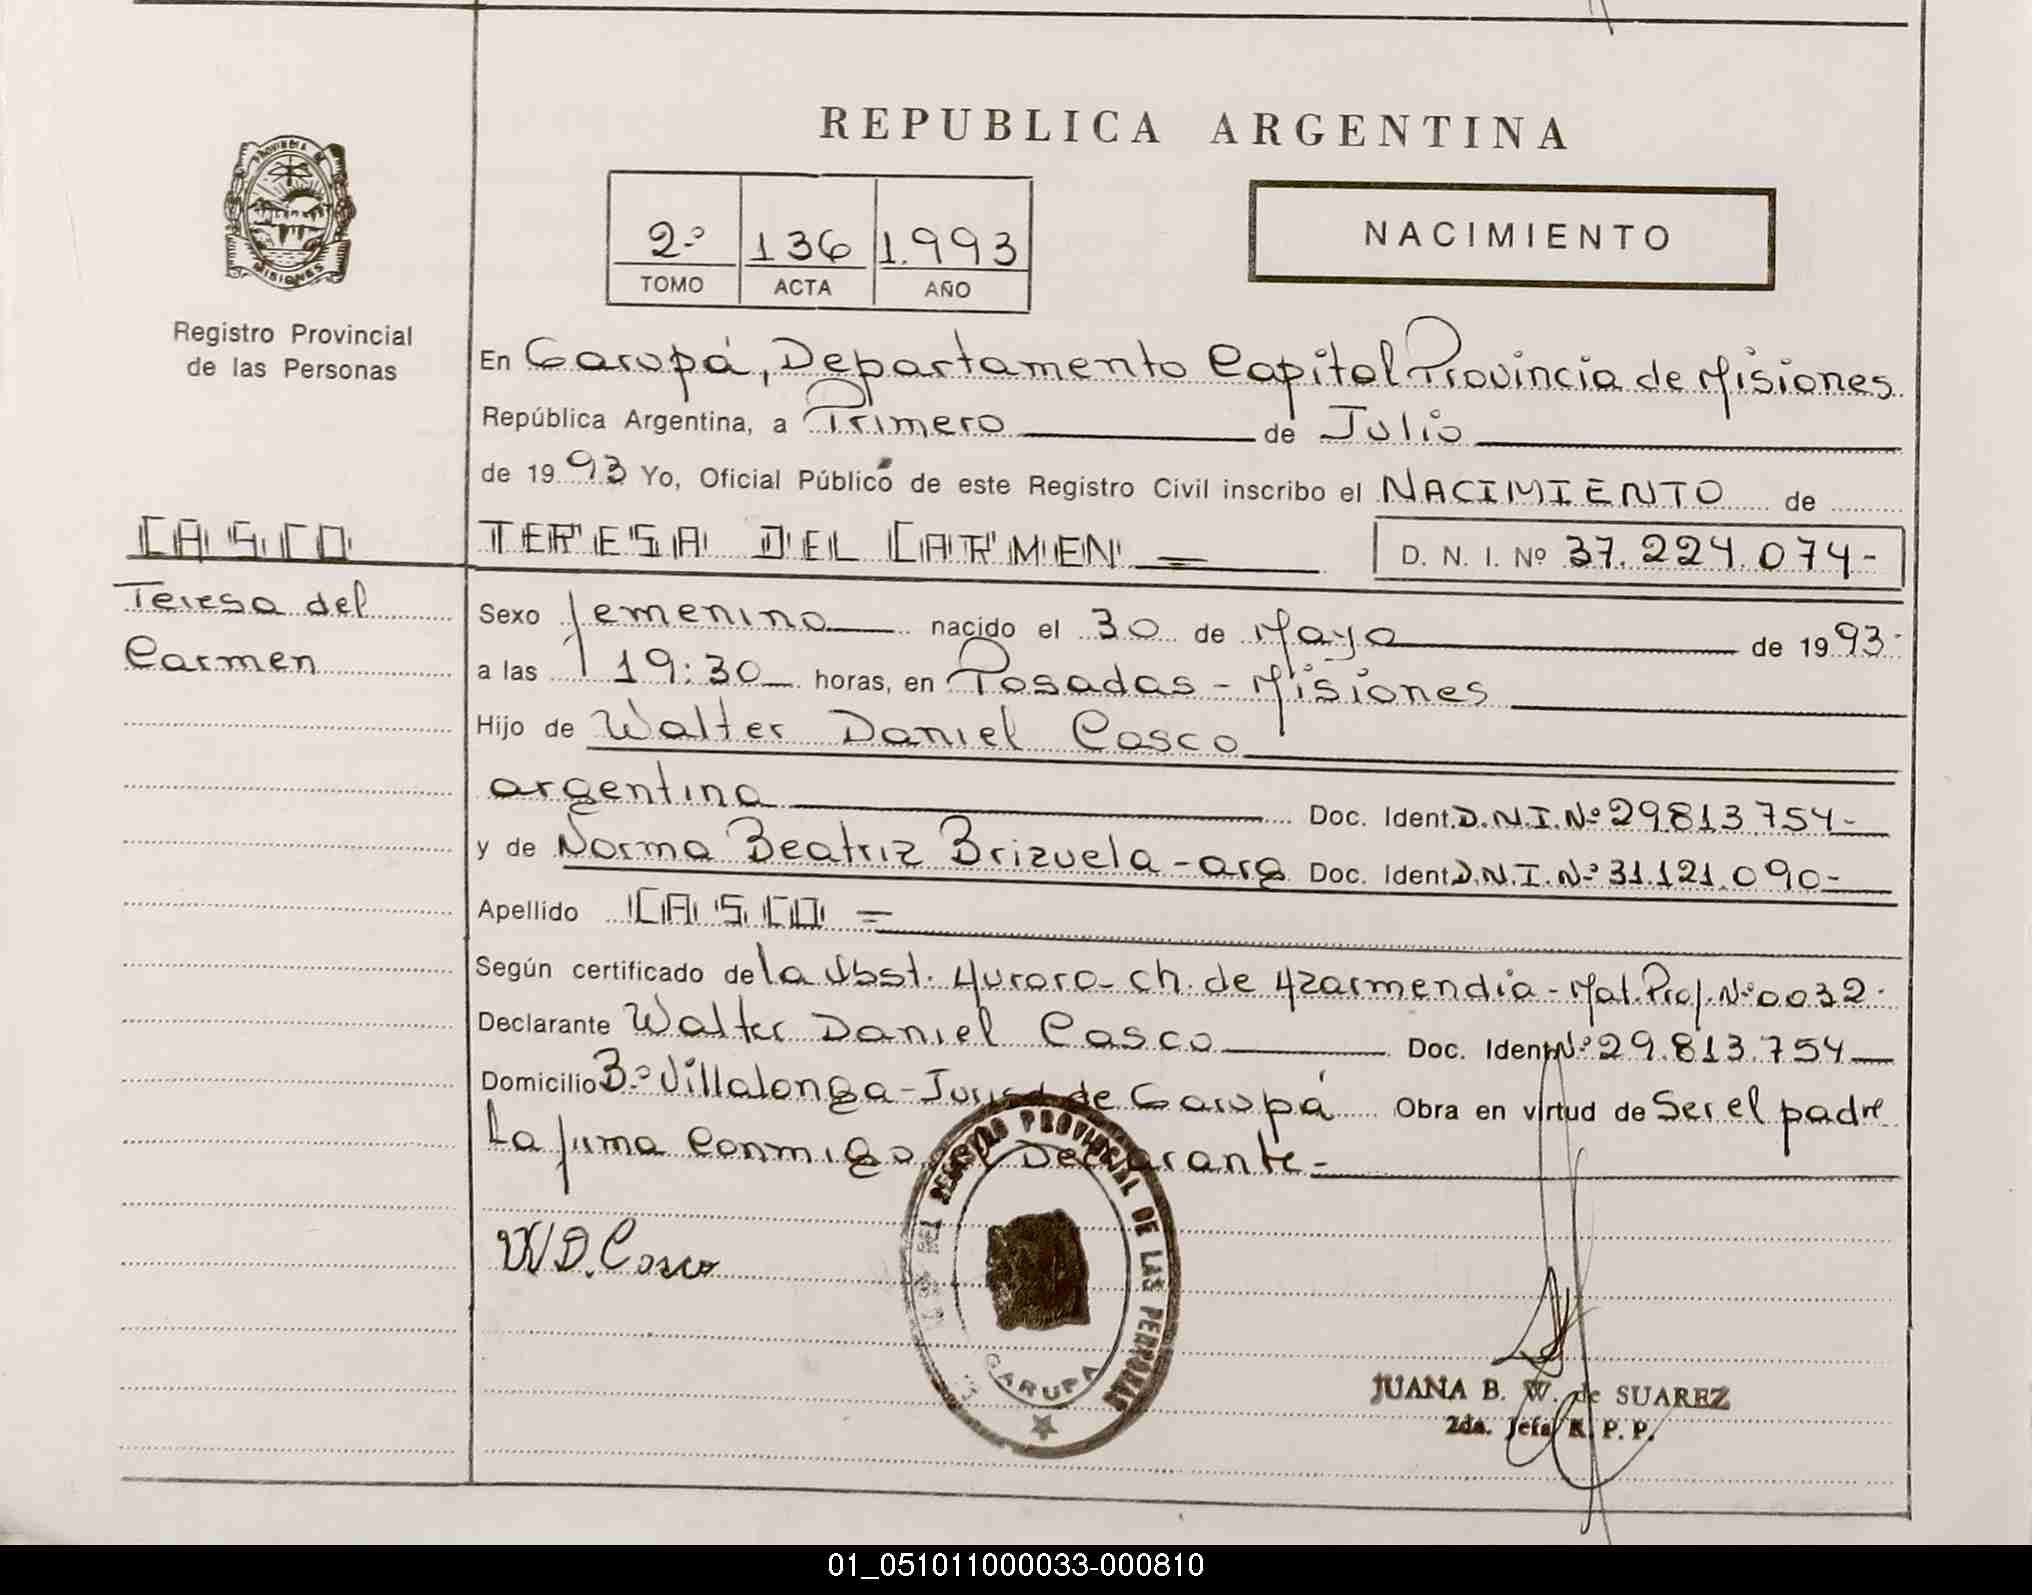 REPUBLICA ARGENTINA
PROVINCIA DE
MISIONES
Registro Provincial
de las Personas
2º 136 1.993
TOMO ACTA AÑO
NACIMIENTO
En Garupá, Departamento Capital Provincia de Misiones
República Argentina, a Primero de Julio
de 1993 Yo, Oficial Público de este Registro Civil inscribo el NACIMIENTO de
CASCO
TERESA DEL CARMEN = D. N. I. Nº 37.224.074-
Teresa del
Carmen
Sexo femenino nacido el 30 de Mayo de 1993-
a las 19:30 horas, en Posadas - Misiones
Hijo de Walter Daniel Casco
argentina Doc. Ident. D.N.I.Nº 29.813.754-
y de Norma Beatriz Brizuela - arg Doc. Ident. D.N.I.Nº 31.121.090-
Apellido CASCO =
Según certificado de la Obst. Aurora Ch. de Azarmendia - Mat. Prof. Nº 0032-
Declarante Walter Daniel Casco Doc. Ident Nº 29.813.754
Domicilio Bº Villalonga - Jurisd de Garupá Obra en virtud de Ser el padre
La firma Conmigo, el Declarante-
W D. Casco
DEL REGISTRO PROVINCIAL DE LAS PERSONAS
GARUPA
JUANA B. W. de SUAREZ
2da. Jefa R. P. P.
01_051011000033-000810